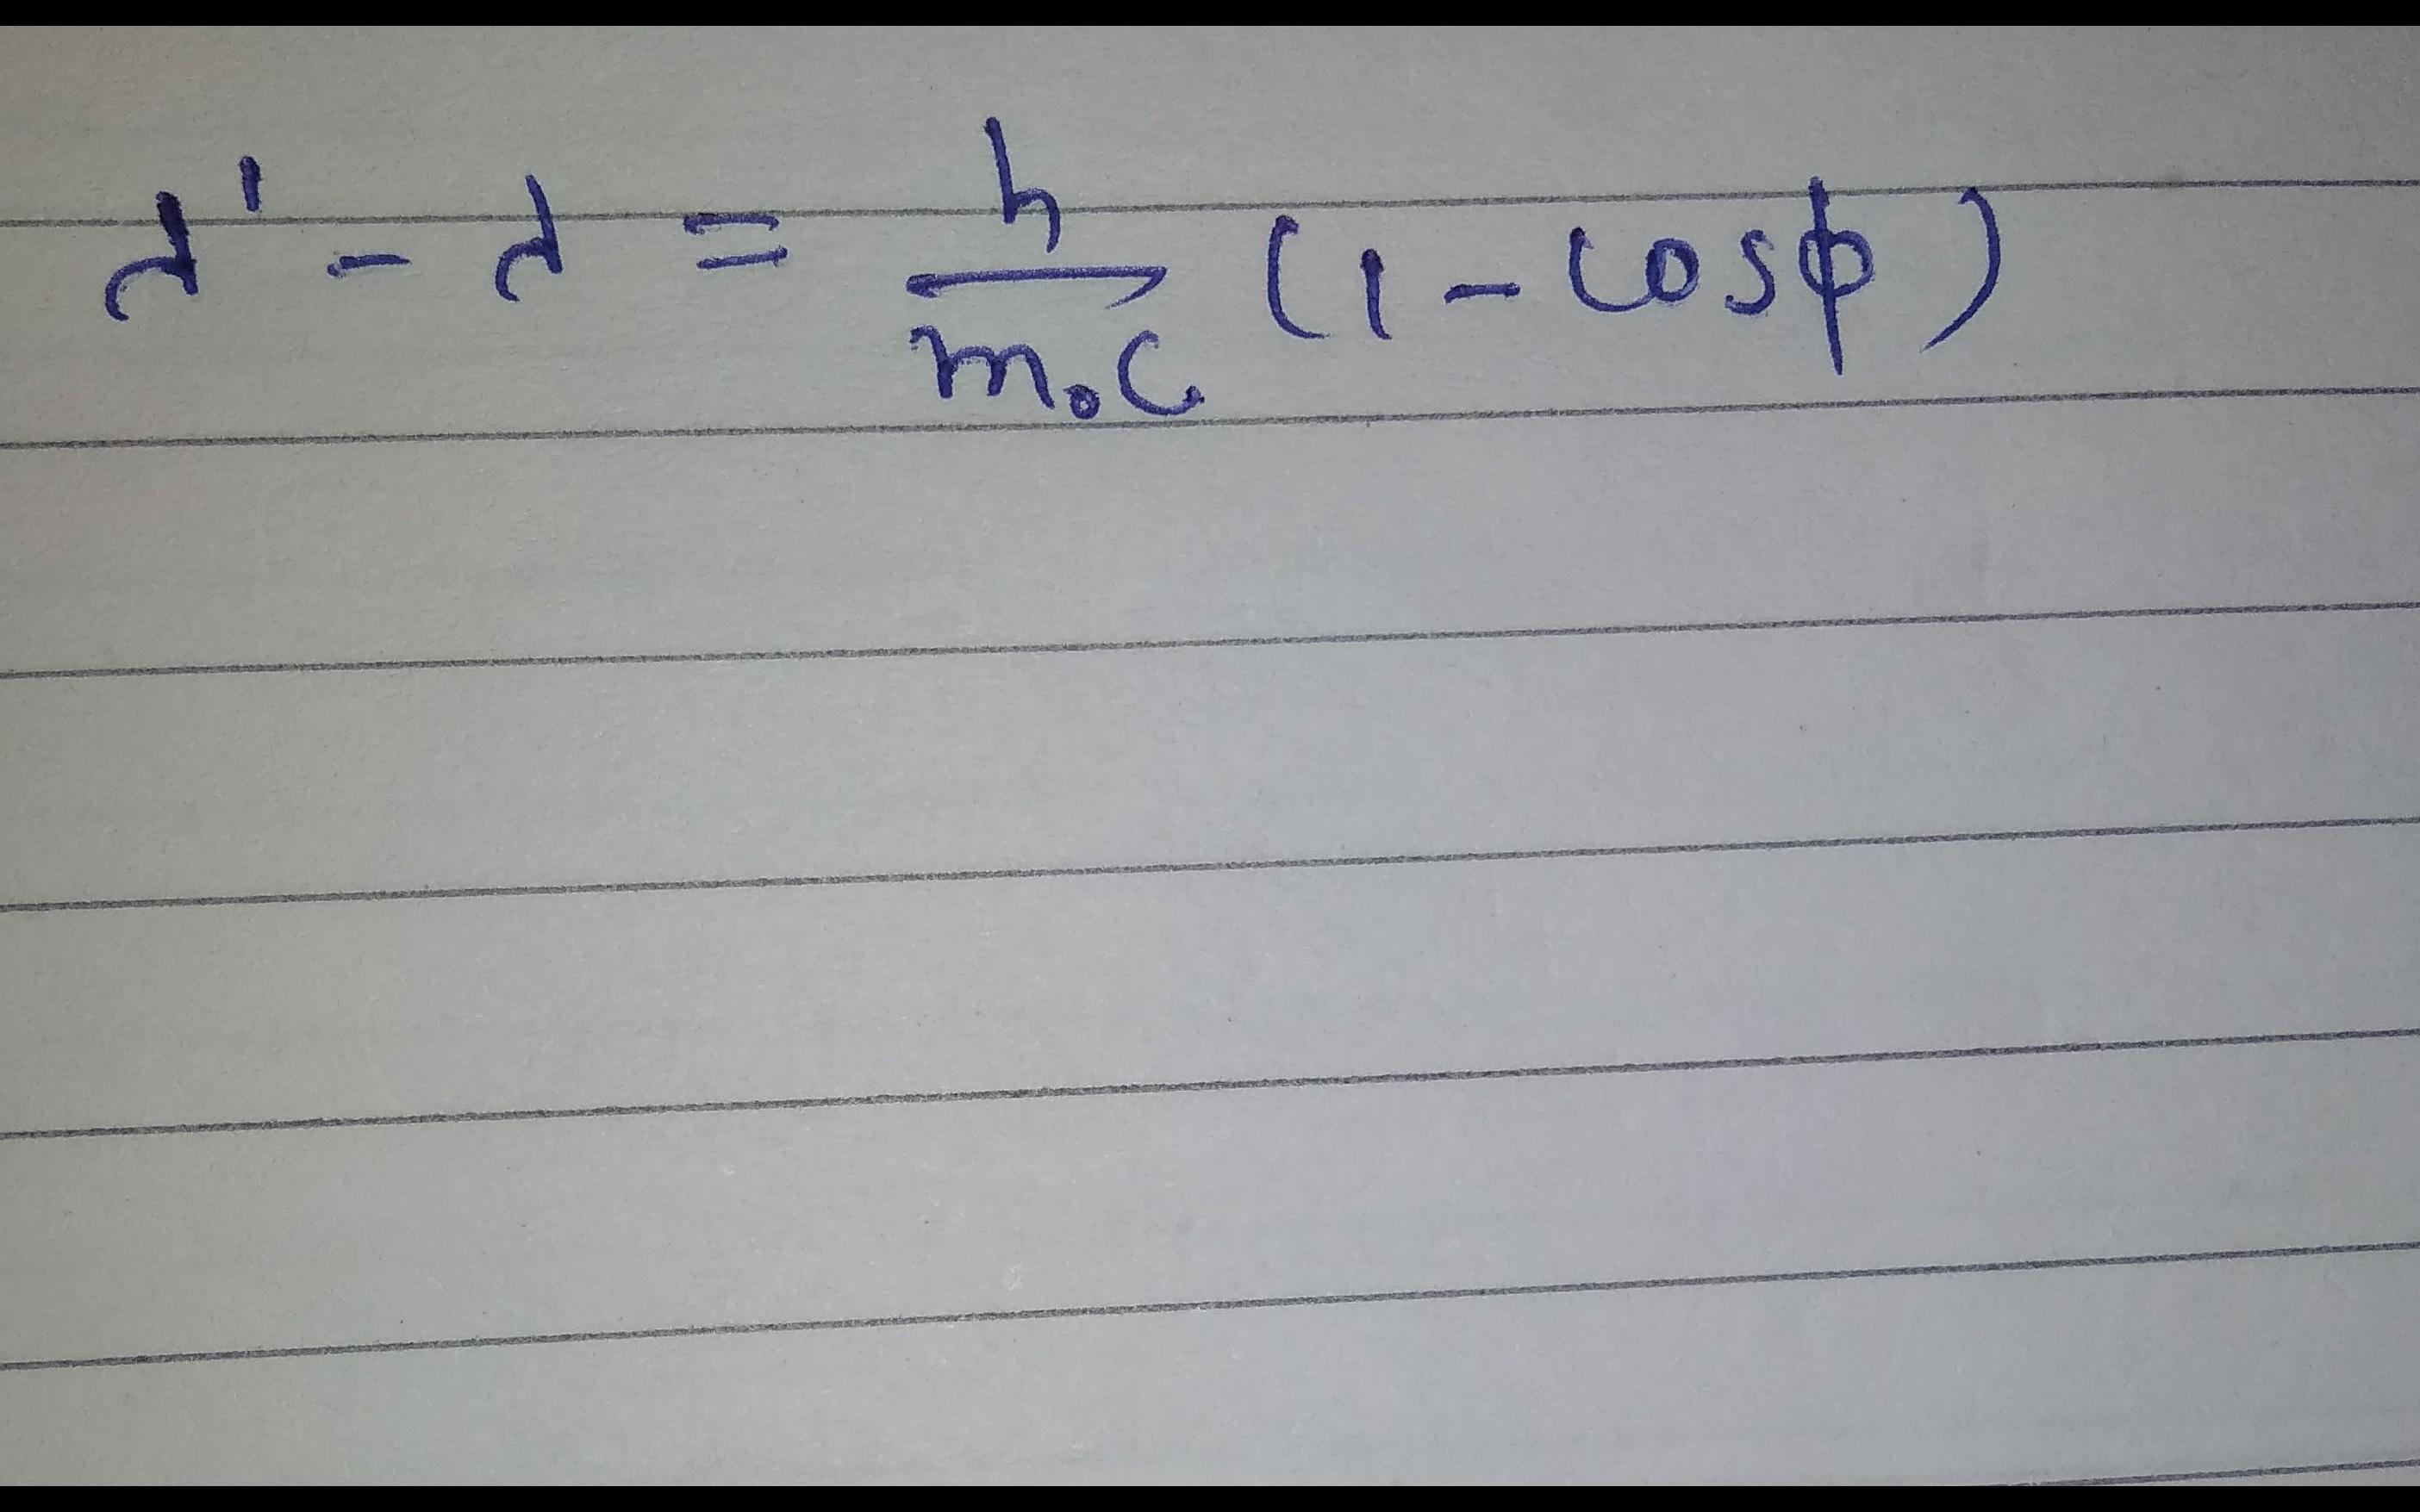 λ' - λ = h/m₀c (1 - cosϕ)